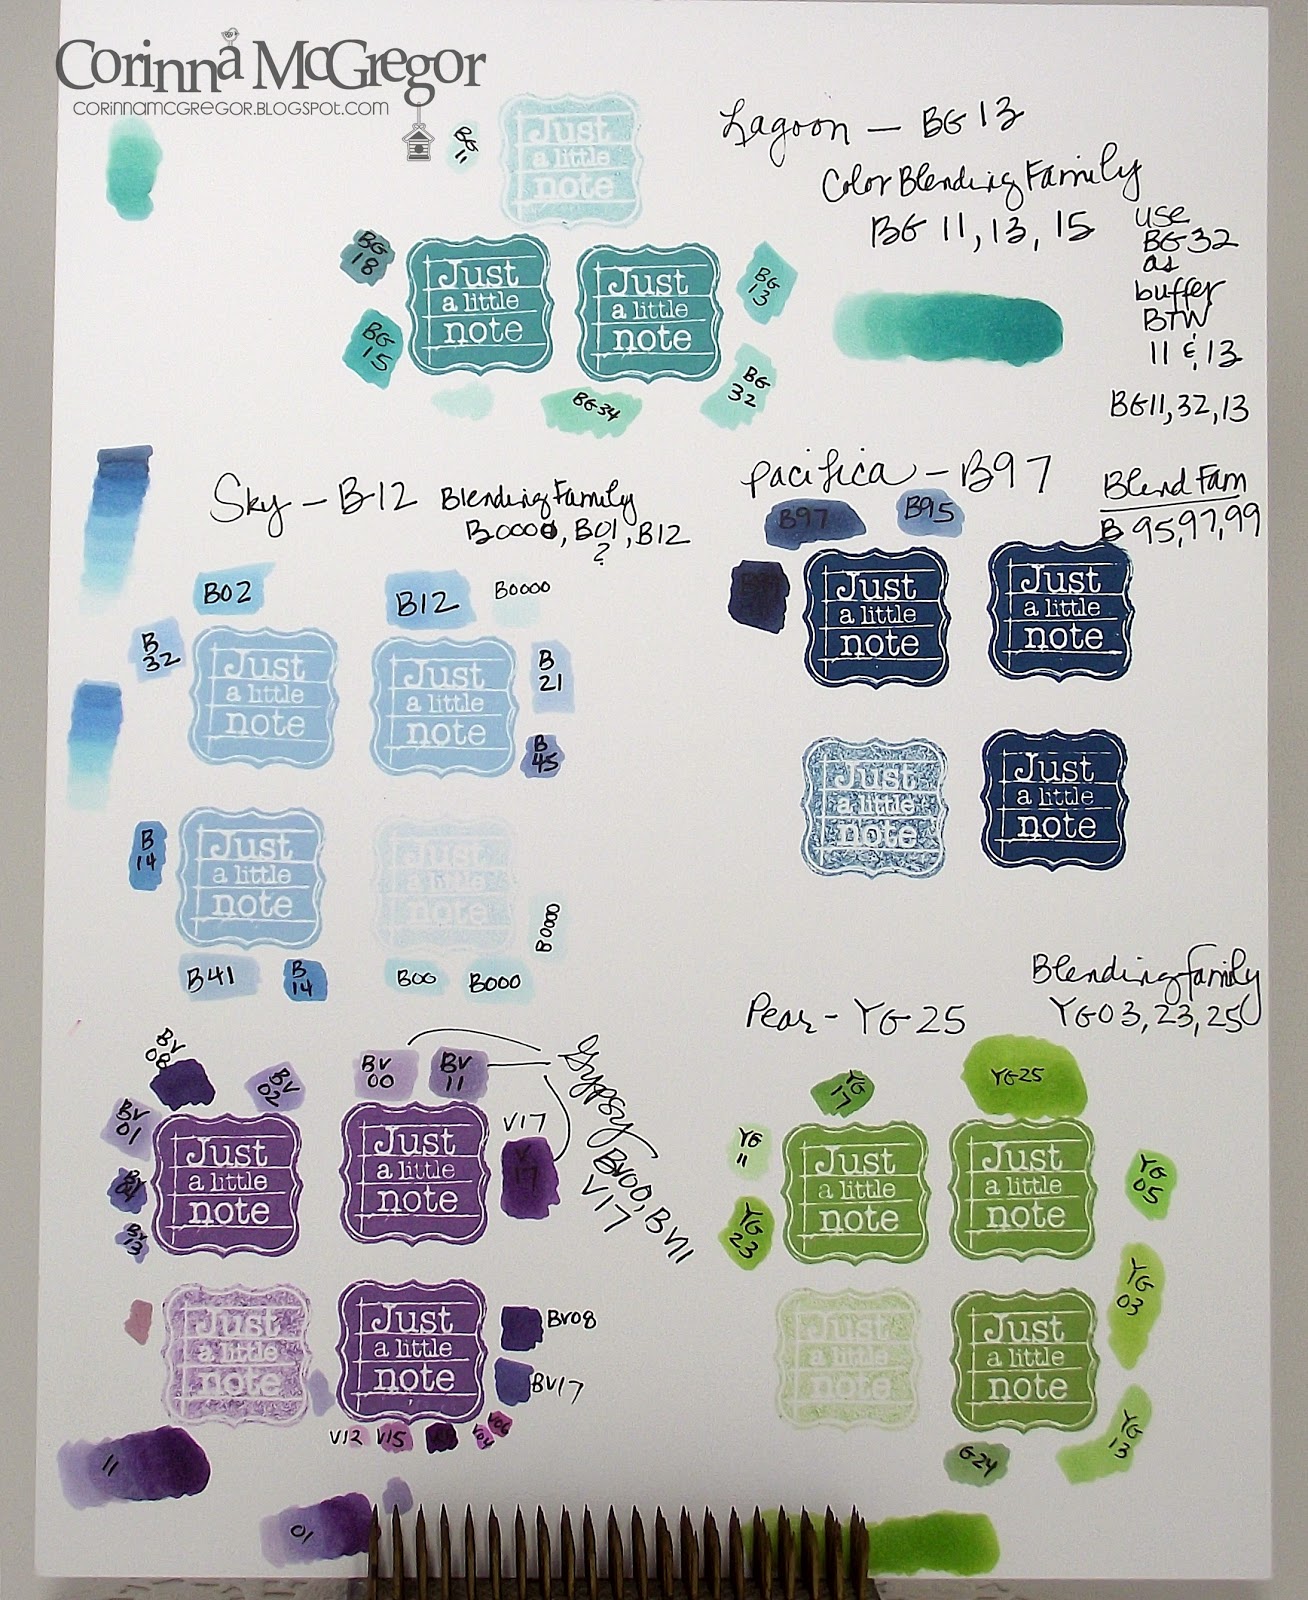 Corinna McGregor
CORINNAMCGREGOR.BLOGSPOT.COM
Lagoon — BG 13
Color Blending Family
BG 11, 13, 15
use
BG 32
as
buffer
BTW
11 & 13
BG11, 32, 13
BG
11
Just
a little
note
BG
18
BG
15
Just
a little
note
Just
a little
note
BG
13
BG
32
BG34
Sky — B12
Blending Family
B0000, B01, B12
?
B02
B12
B0000
B
32
Just
a little
note
Just
a little
note
B
21
B
45
B
14
Just
a little
note
Just
a little
note
B0000
B41
B
14
B00
B000
Pacifica — B97
Blend Fam
B 95, 97, 99
B97
B95
Just
a little
note
Just
a little
note
Just
a little
note
Just
a little
note
BV
08
BV
02
BV
01
BV
13
BV
00
BV
11
Gypsy
BV00, BV11
V17
V17
V
17
Just
a little
note
Just
a little
note
Just
a little
note
Just
a little
note
BV08
BV17
V12
V15
V04
V06
11
01
Pear - YG25
Blending Family
YG03, 23, 25
YG
17
YG25
YG
11
YG
23
Just
a little
note
Just
a little
note
YG
05
YG
03
Just
a little
note
Just
a little
note
YG
13
G24